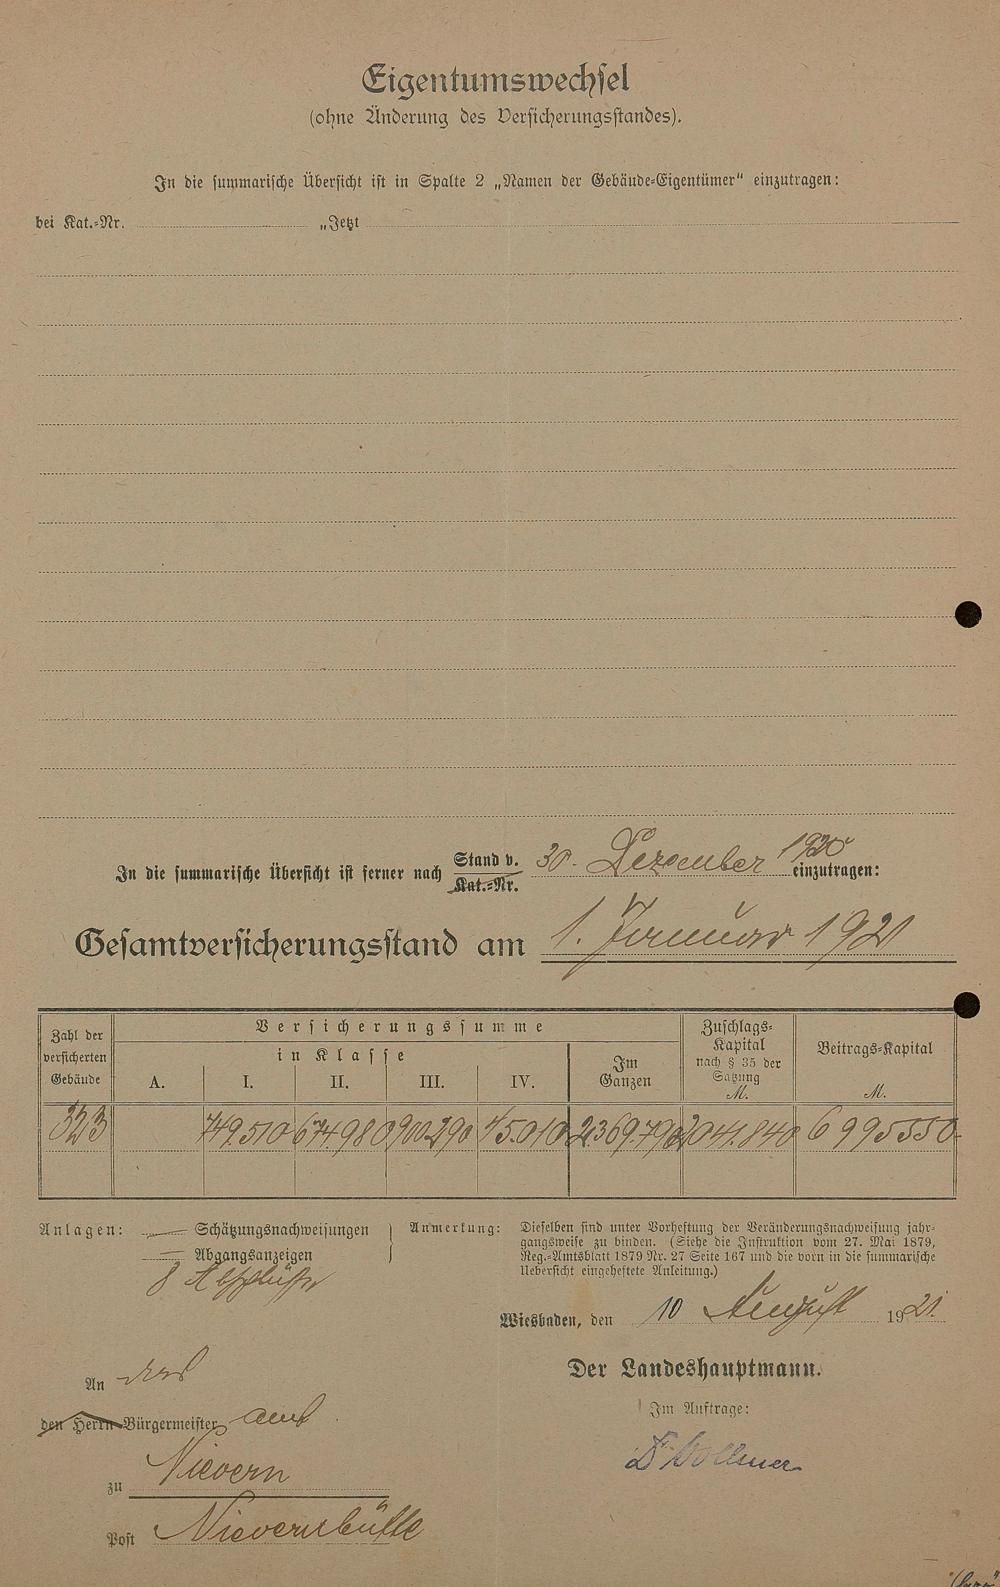 Eigentumswechsel
(ohne Änderung des Versicherungsstandes).
In die summarische Übersicht ist in Spalte 2 „Namen der Gebäude-Eigentümer“ einzutragen:
bei Kat.-Nr. „Jetzt
In die summarische Übersicht ist ferner nach Stand v. 30. Dezember 1920 einzutragen:
Kat.-Nr.
Gesamtversicherungsstand am 1. Januar 1921
Zahl der versicherten Gebäude
Versicherungssumme
in Klasse
A. I. II. III. IV.
Im Ganzen
Zuschlags-Kapital nach § 35 der Satzung M.
Beitrags-Kapital M.
323 749.510 674.980 900.290 45.010 2369.790 2041.840 6995550.
Anlagen: Schätzungsnachweisungen
Abgangsanzeigen
8
Anmerkung: Dieselben sind unter Vorheftung der Veränderungsnachweisung jahr-
gangsweise zu binden. (Siehe die Instruktion vom 27. Mai 1879,
Reg.-Amtsblatt 1879 Nr. 27 Seite 167 und die vorn in die summarische
Uebersicht eingeheftete Anleitung.)
Wiesbaden, den 10 August 1921.
Der Landeshauptmann.
Im Auftrage:
An das
den Herrn Bürgermeister amt
zu Nievern
Post Nievernhütte